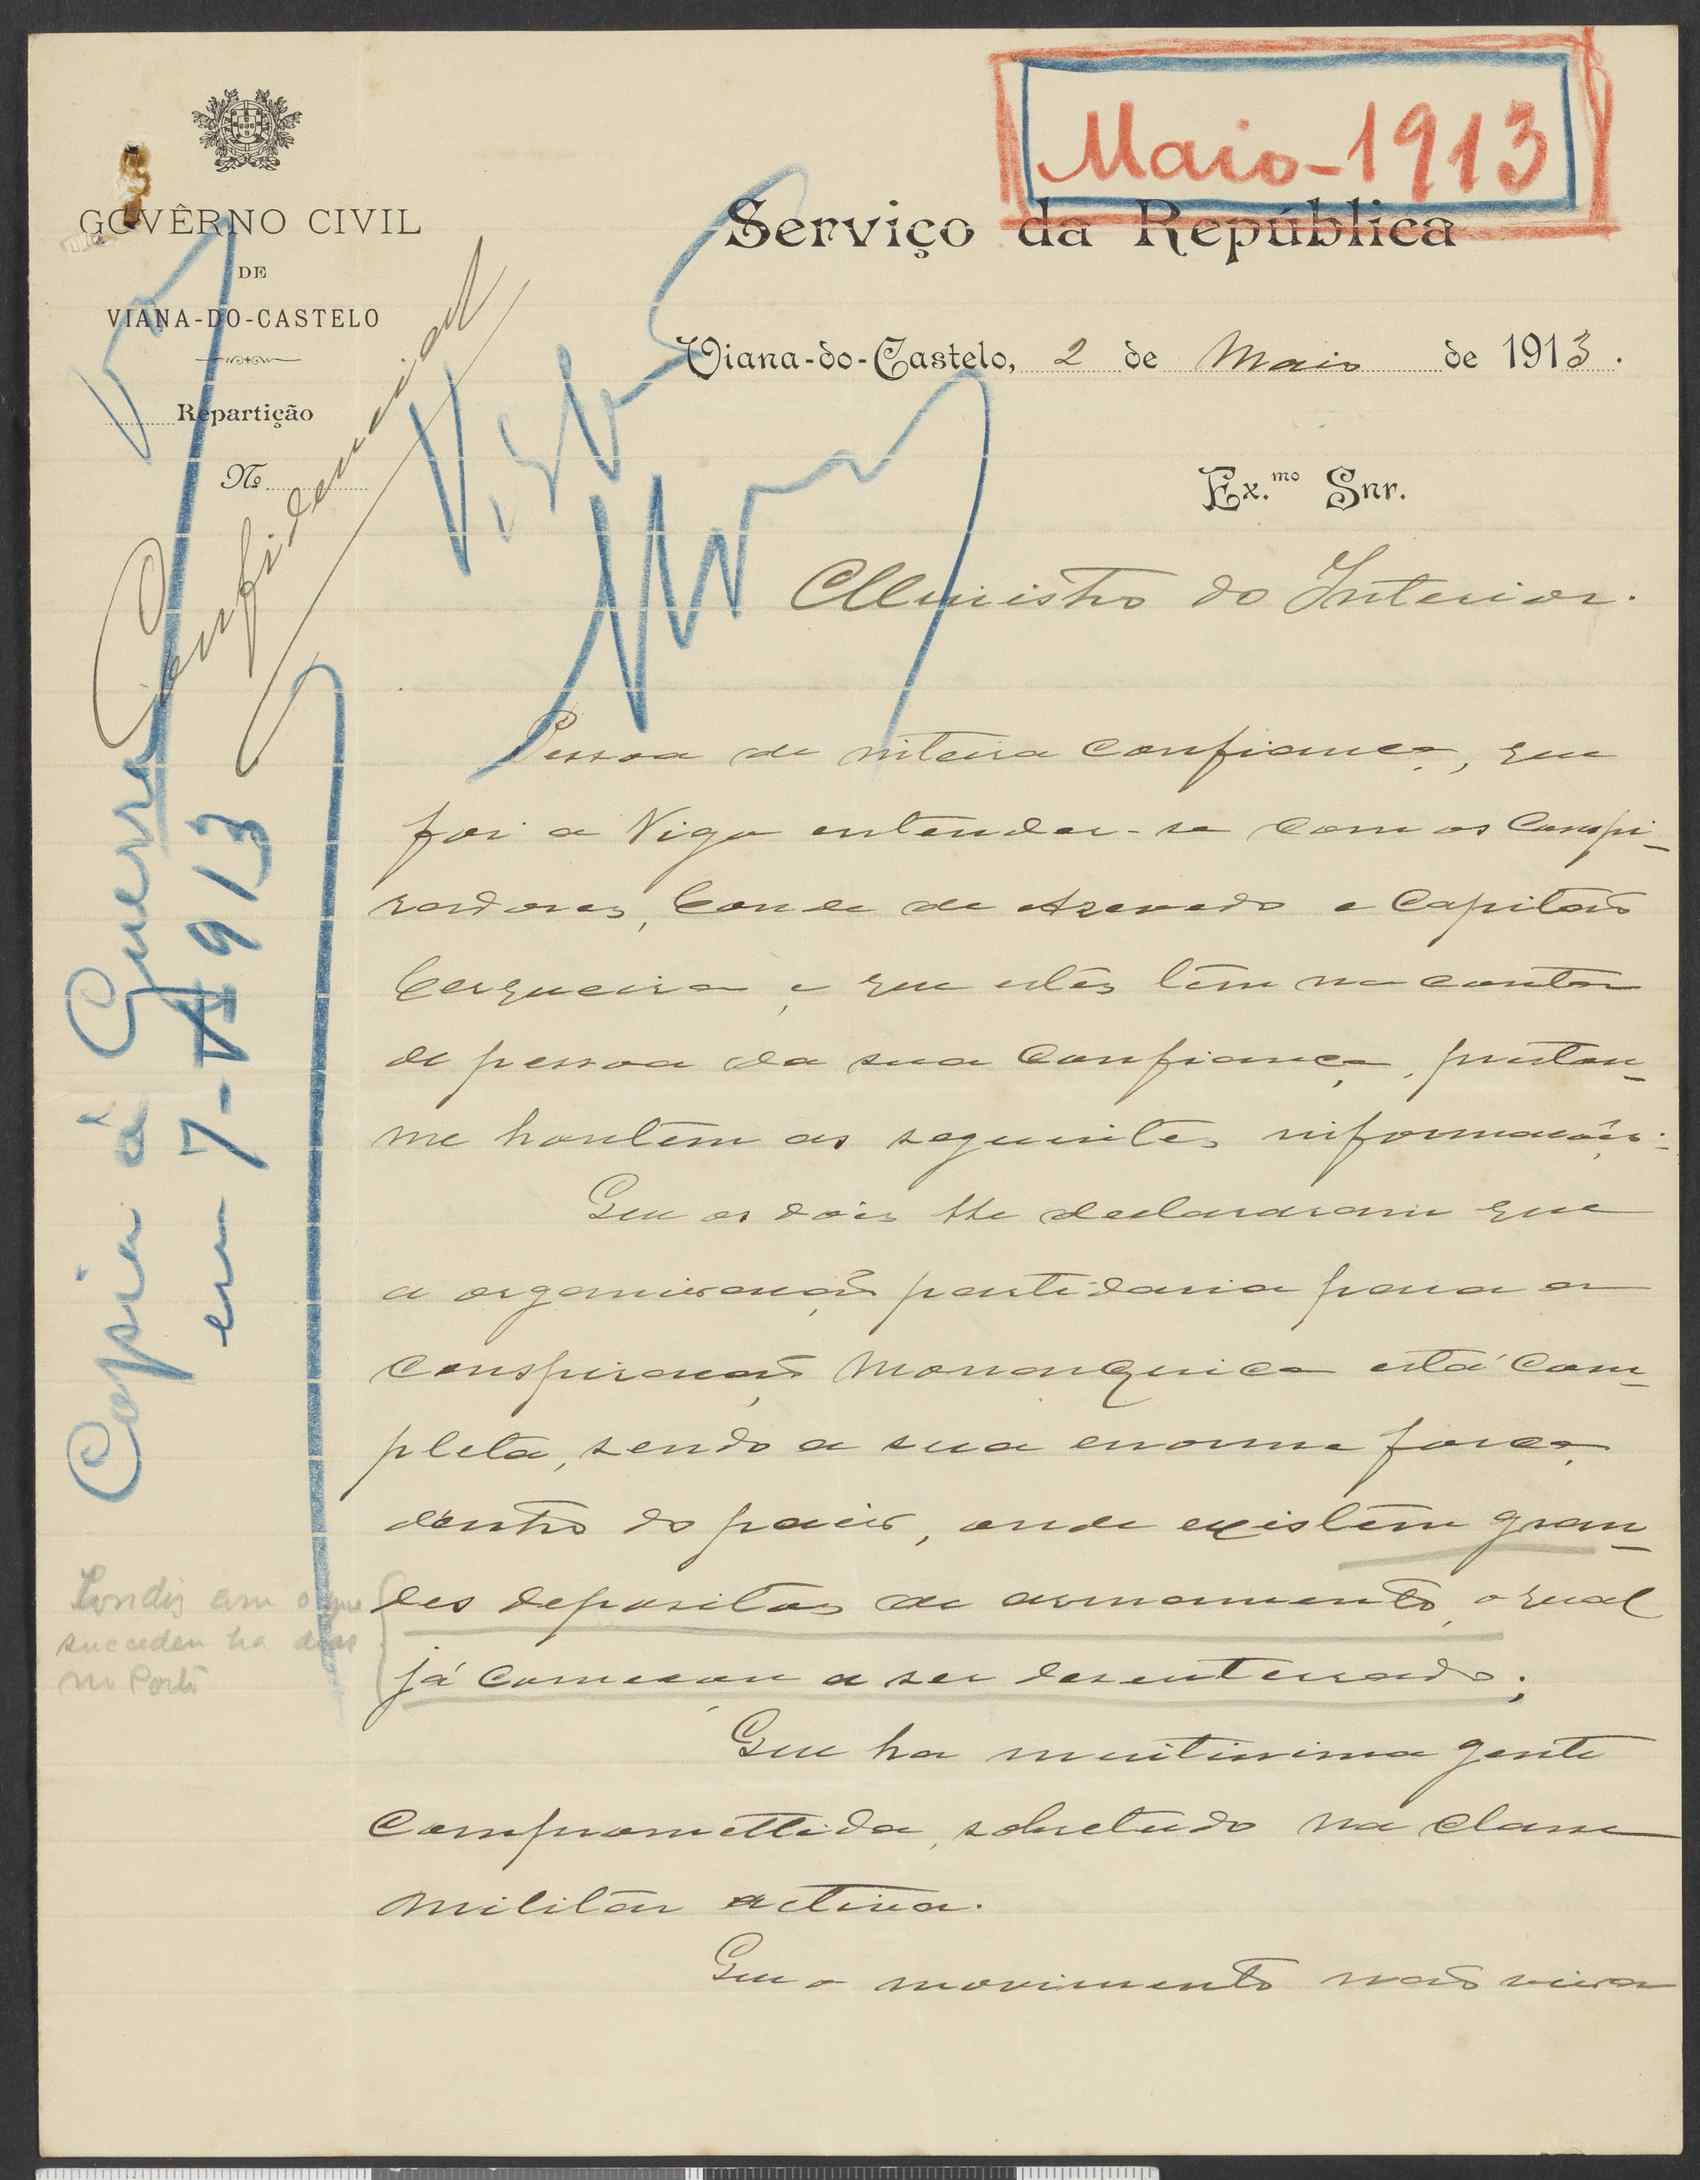 Maio-1913
GOVÊRNO CIVIL
DE
VIANA-DO-CASTELO
Repartição
Nº
Confidencial
Serviço da República
Viana-do-Castelo, 2 de Maio de 1913.
Visto
Ex.mo Snr.
Ministro do Interior.
Pessoa de inteira confiança, que
foi a Vigo entender-se com os conspi-
radores, Conde de Azevedo e Capitão
Cerqueira, e que estes têm na conta
de pessoa da sua confiança, prestou-
me hontem as seguintes informações:
Que os dois lhe declararam que
a organisação partidaria para a
conspiração monarquica está com-
pleta, sendo a sua enorme força,
dentro do paiz, onde existem gran-
des depositos de armamento, o qual
já começou a ser desenterrado;
Que ha muitissima gente
compromettida, sobretudo na classe
militar activa.
Que o movimento não virá
Copia á Guerra
em 7-V-913
Condiz com o que
succedeu ha dias
no Porto